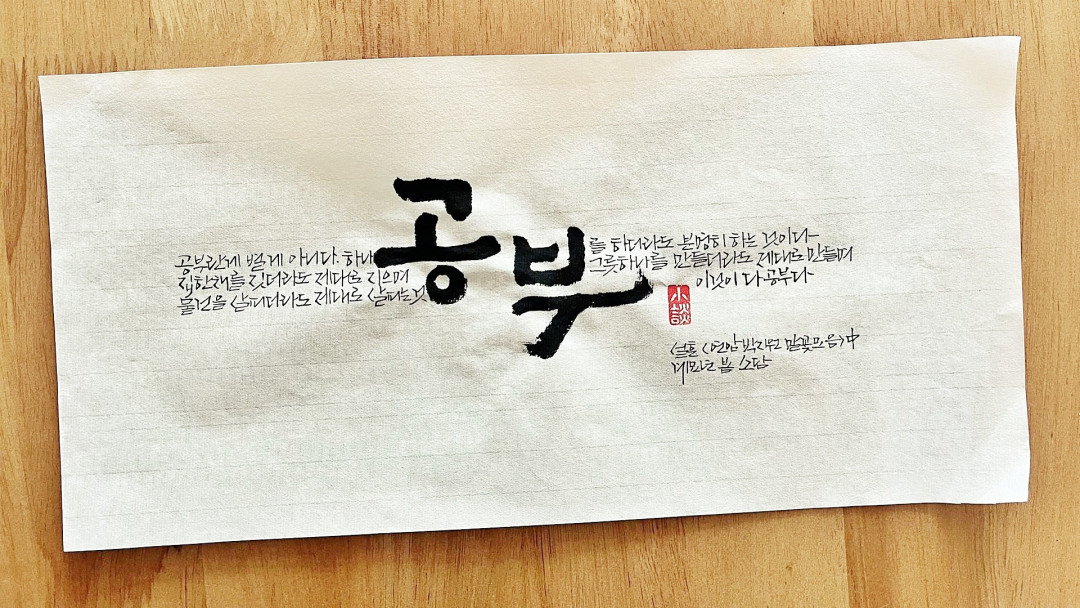 공부란게 별게 아니다. 하나를 하더라도 분명히 하는 것이다
집한채를 짓더라도 제대로 지으며 그릇하나를 만들더라도 제대로 만들며
물건을 살피더라도 제대로 살피는것 이것이 다 공부다
공부
小談
설흔 <연암 박지원 말꽃모음> 中
계묘년 봄 소담